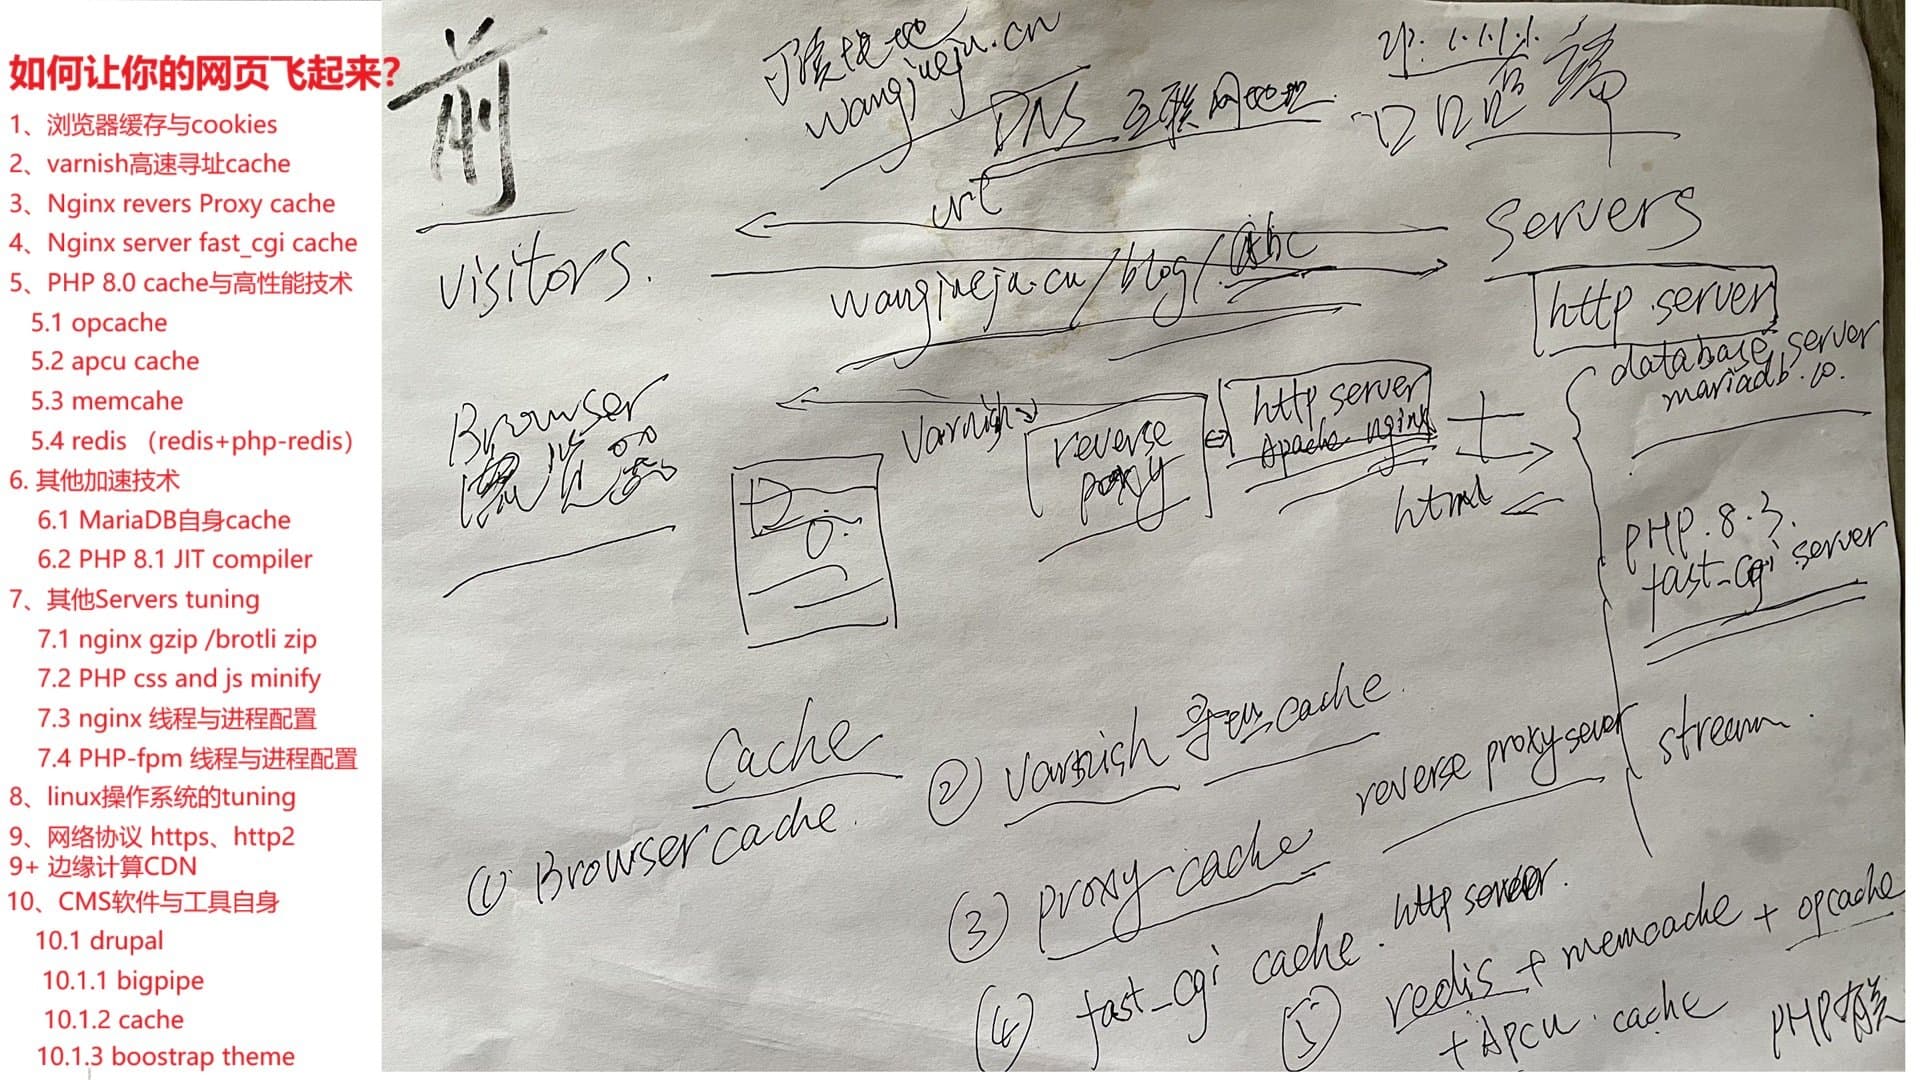 如何让你的网页飞起来?
1、浏览器缓存与cookies
2、varnish高速寻址cache
3、Nginx revers Proxy cache
4、Nginx server fast_cgi cache
5、PHP 8.0 cache与高性能技术
5.1 opcache
5.2 apcu cache
5.3 memcahe
5.4 redis （redis+php-redis）
6. 其他加速技术
6.1 MariaDB自身cache
6.2 PHP 8.1 JIT compiler
7、其他Servers tuning
7.1 nginx gzip /brotli zip
7.2 PHP css and js minify
7.3 nginx 线程与进程配置
7.4 PHP-fpm 线程与进程配置
8、linux操作系统的tuning
9、网络协议 https、http2
9+ 边缘计算CDN
10、CMS软件与工具自身
10.1 drupal
10.1.1 bigpipe
10.1.2 cache
10.1.3 boostrap theme
前
wangjueju.cn
DNS 互联网地址
IP. 1.1.1.1.
后端
url
visitors.
servers
wangjueju.cn/blog/.abc
http.server
database server
mariadb.10.
Browser
浏览器
varnish
reverse
proxy
http server
Apache nginx
html
PHP.8.3.
fast_cgi server
stream.
Cache
① Browser cache.
② varnish 寻址 cache.
③ proxy cache
reverse proxy sever
④ fast_cgi cache. http server.
⑤ redis + memcache + opcache
+ Apcu. cache
PHP有关